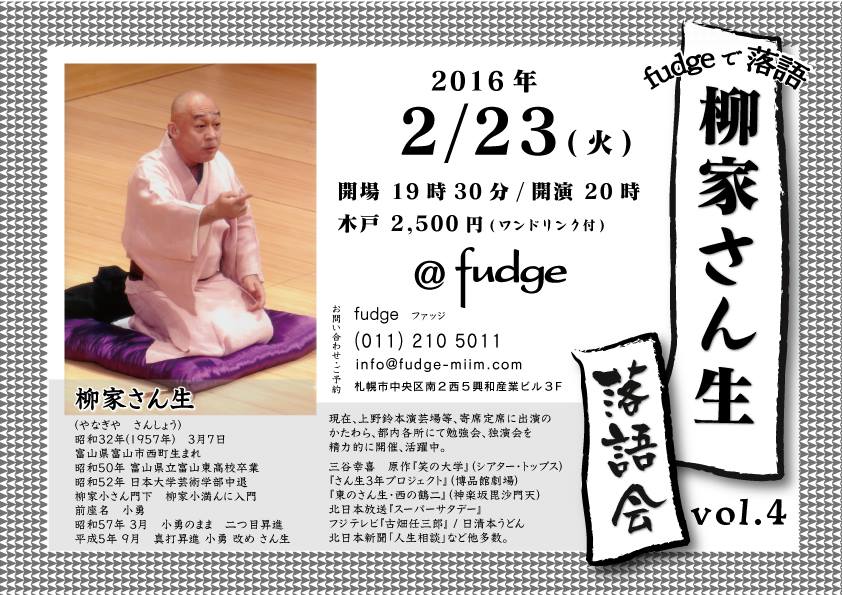 fudgeで落語
柳家さん生
落語会
vol.4
2016年
2/23(火)
開場 19時30分/開演 20時
木戸 2,500円(ワンドリンク付)
@fudge
お問い合わせ・ご予約
fudge ファッジ
(011) 210 5011
info@fudge-miim.com
札幌市中央区南2西5興和産業ビル3F
柳家さん生
(やなぎや さんしょう)
昭和32年(1957年) 3月7日
富山県富山市西町生まれ
昭和50年 富山県立富山東高校卒業
昭和52年 日本大学芸術学部中退
柳家小さん門下 柳家小満んに入門
前座名 小勇
昭和57年 3月 小勇のまま 二つ目昇進
平成5年 9月 真打昇進 小勇 改め さん生
現在、上野鈴本演芸場等、寄席定席に出演の
かたわら、都内各所にて勉強会、独演会を
精力的に開催、活躍中。
三谷幸喜 原作『笑の大学』(シアター・トップス)
『さん生3年プロジェクト』(博品館劇場)
『東のさん生・西の鶴二』(神楽坂毘沙門天)
北日本放送『スーパーサタデー』
フジテレビ『古畑任三郎』 / 日清本うどん
北日本新聞「人生相談」など他多数。